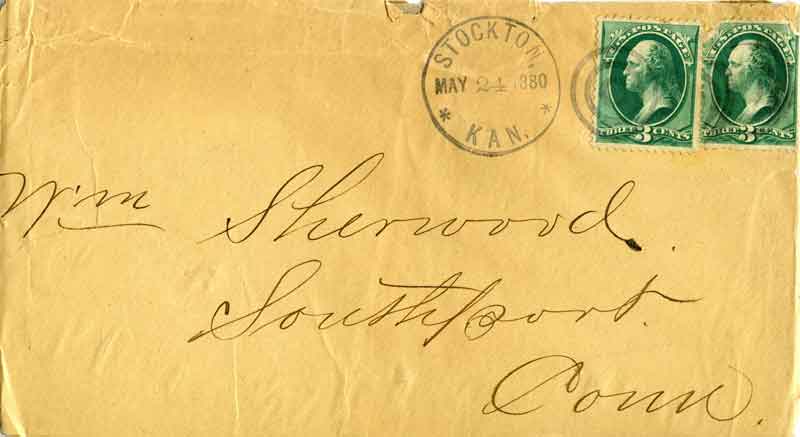 STOCKTON,
MAY 24 1880
KAN.
U.S. POSTAGE
THREE 3 CENTS
U.S. POSTAGE
THREE 3 CENTS
Wm Sherwood.
Southport.
Conn.